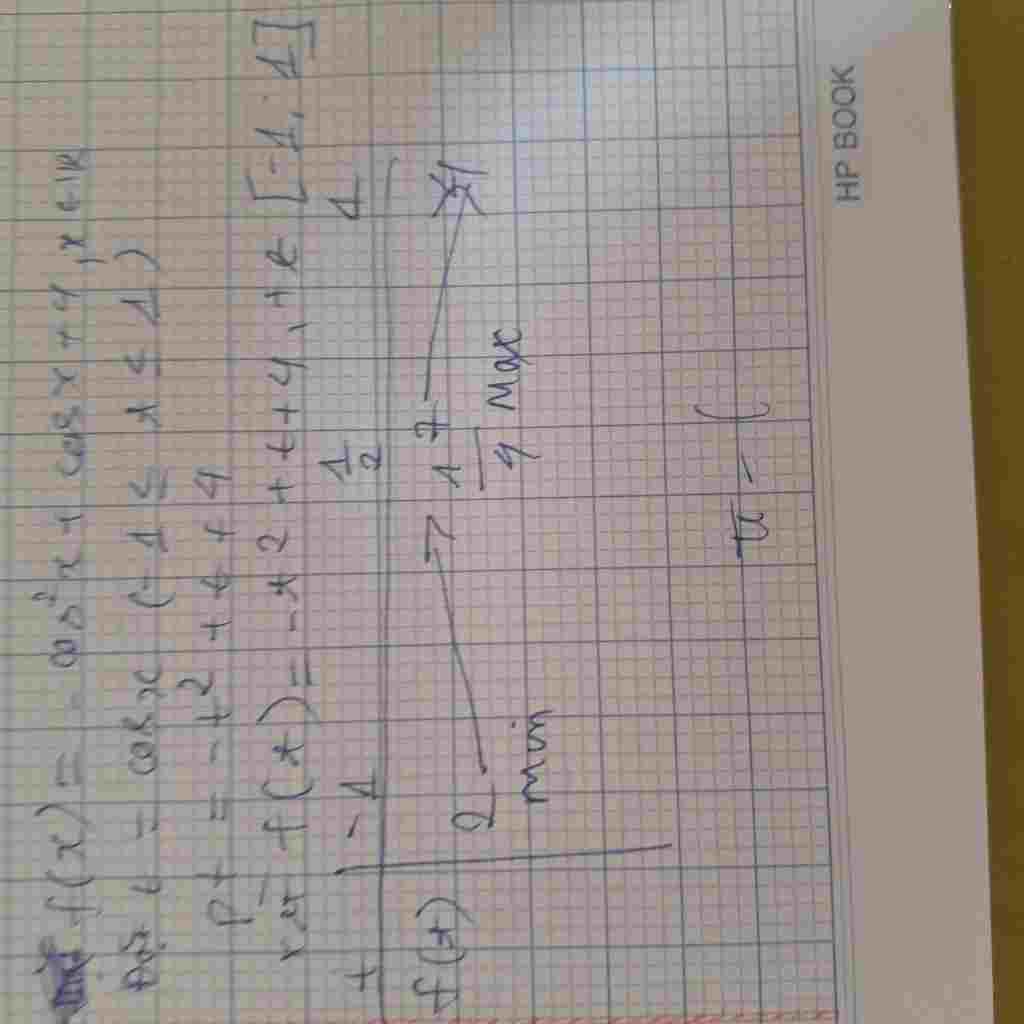 f(x) = - cos²x + cos x + 4, x ∈ ℝ
Đặt t = cos x (-1 ≤ t ≤ 1)
Pt = -t² + t + 4
xét f(t) = -t2 + t + 4, t ∈ [-1; 1]
t -1 1/2 1
f(t) 2 17/4 4
min Max
π - (
HP BOOK